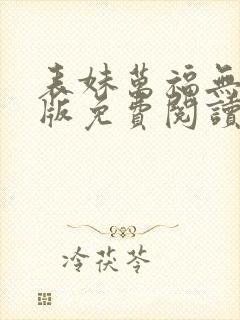 表妹萬福無
版免費閱讀
冷茯苓